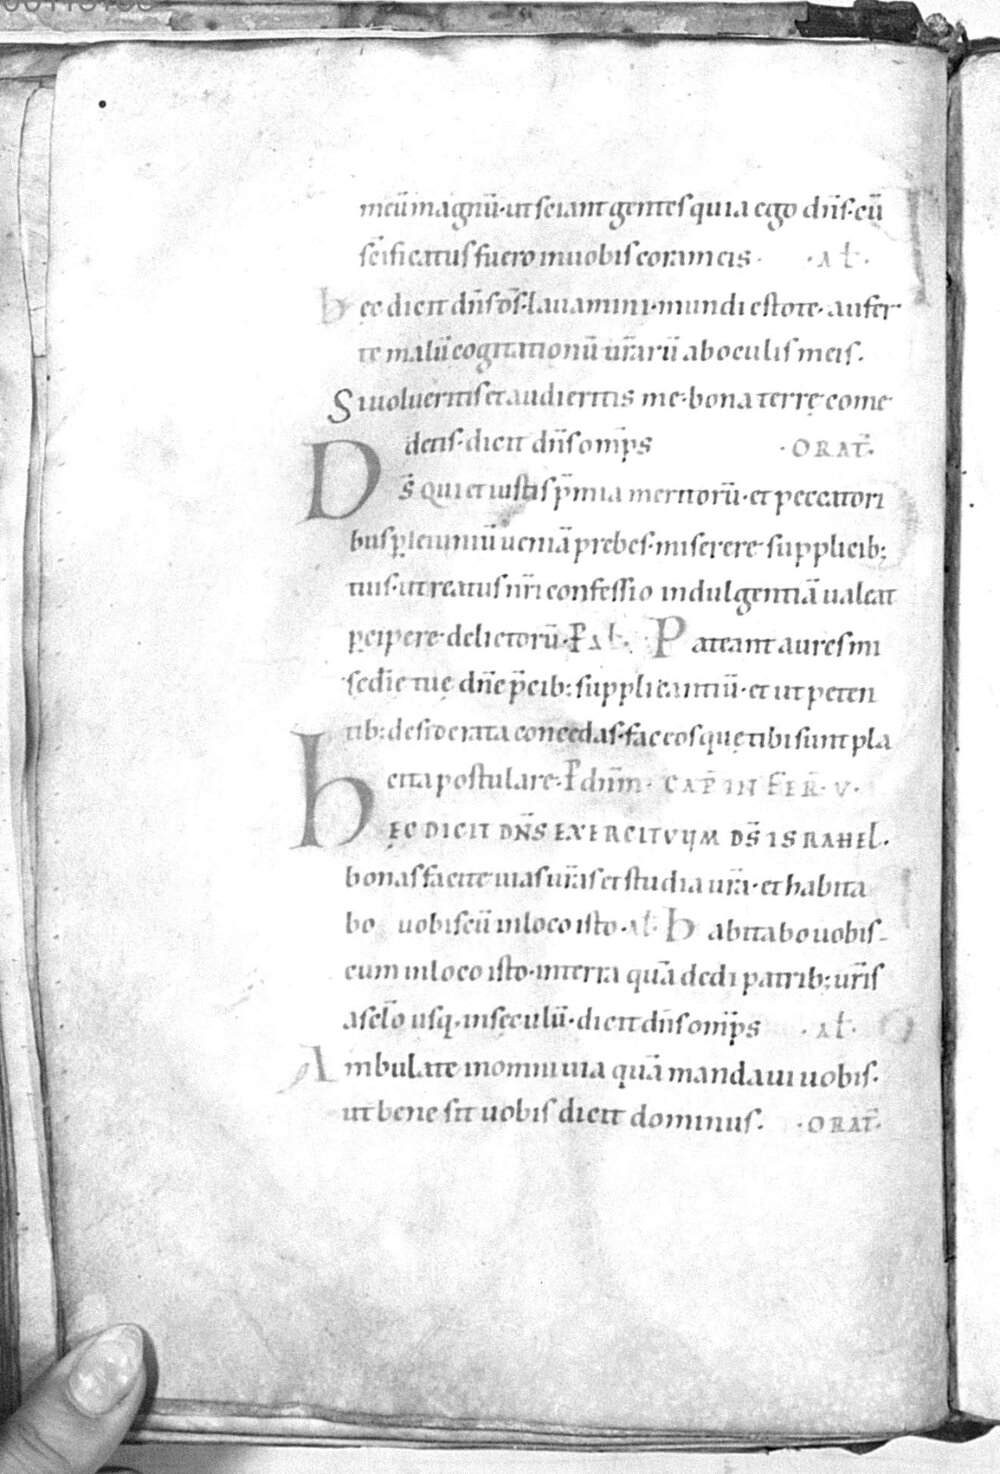 meū magnū· ut sciant gentes quia ego dn̄s· cū
sc̄ificatus fuero in uobis coram eis· ·AL̄·
hec dicit dn̄s om̄s· lauamini· mundi estote· aufer
te malū cogitationū ur̄arū ab oculis meis.
Si uolueritis et audieritis me· bona terrę come
detis· dicit dn̄s om̄ps ·ORAT̄·
Ds̄ qui et iustis p̄mia meritorū· et peccatori
bus p̱ ieiuniū ueniā prebes· miserere supplicib;
tuis· ut reatus nr̄i confessio indulgentiā ualeat
p̱cipere delictorū· P̄ AL̄· Pateant aures mi
sedię tuę dn̄e p̄cib; supplicantiū· et ut peten
tib; desiderata concedas· fac eos quę tibi sunt pla
cita postulare· P̄ dnm̄· CAP̄ IN FER̄· V·
hĘC DICIT DN̄S EXERCITVUM DS̄ ISRAHEL·
bonas facite uias ur̄as et studia ur̄a· et habita
bo uobiscū in loco isto· al̄· habitabo uobis-
cum in loco isto· in terra quā dedi patrib; ur̄is
a sc̄lo usq· in sęculū· dicit dn̄s om̄ps ·AL̄·
Ambulate in omni uia quā mandaui uobis·
ut bene sit uobis dicit dominus. ·ORAT̄·